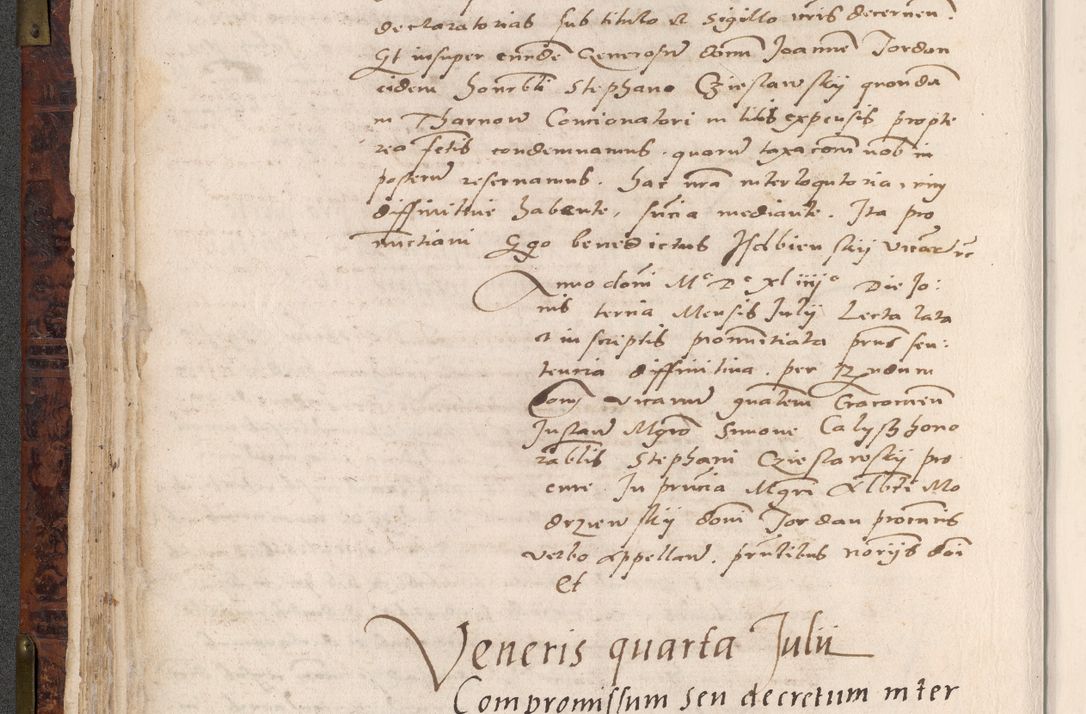 declaratorias sub titulo et sigillo nris decernen.
Et insuper eundē Generosū domū Joannē Jordan
eidem honorbli Stephano Czieslawskij quondā
in Tharnow Concionatori in litis expensis propte
rea fetis condemnamus. quarū taxacom̄ nob in
posterū reservamus. hac nrā interloqutoria, vim
diffinitive habente, sn̄cia mediante. Ita pro
nunctiavi Ego benedictus Isdbienskij Vicarius
Anno domi M° D° xliiii° Die Jo:
nis tercia Mensis Julij Lecta lata
et in scriptis pronuntiata prn̄s sen:
tencia diffinitiva. per Rndum
Dom Vicariū gnālem Cracovien̄
Instan̄ Mgrō Simone Calysz hono
rablis Stephani Czieslawskij pro
cure. In prn̄cia Mgri Albti Mo
drzewskij domi Jordan procuris
verbo Appellan̄. prn̄tibus norijs domi
Et
Veneris quarta Julii
Compromissum seu decretum inter